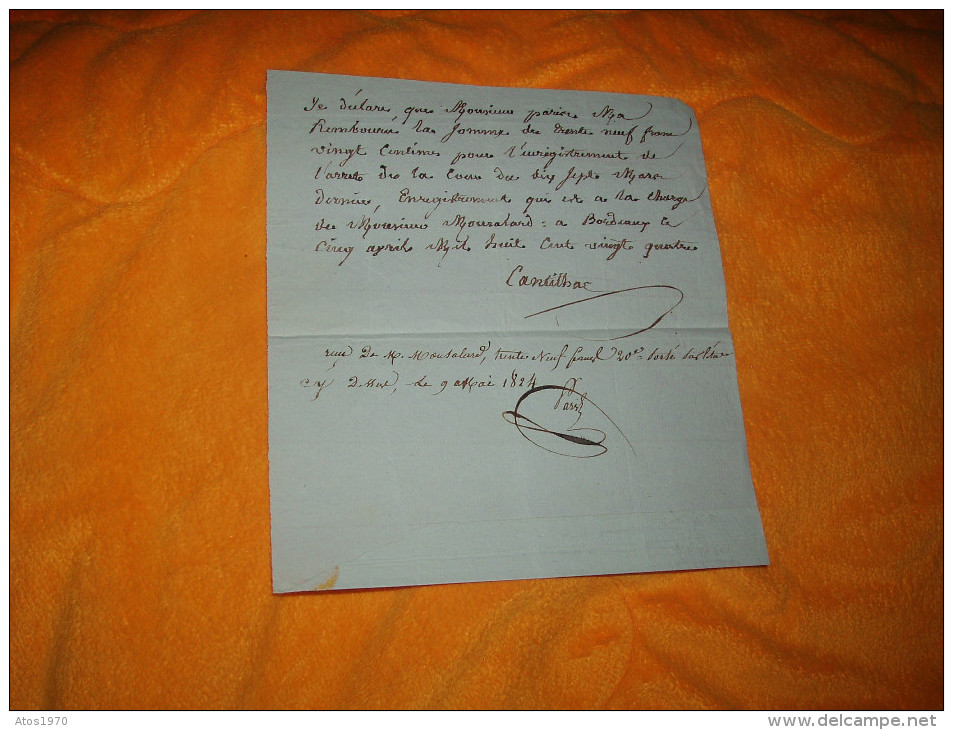 Je déclare que Monsieur parise Ma
Remboursé la somme de trente neuf franc
vingt Centimes pour l'enrégistrement de
l'arret de la Cour du dix sept Mars
dernier, Enregistrement qui est a la charge
de Monsieur Mousalard = a Bordeaux le
Cinq avril Mil huit Cent vingt quatre
Cantilhac
reçu De M. Mousalard, trente Neuf francs 20c. porté
cy Dessus, Le 9 Mai 1824
Paris
Atos1970
www.delcampe.net